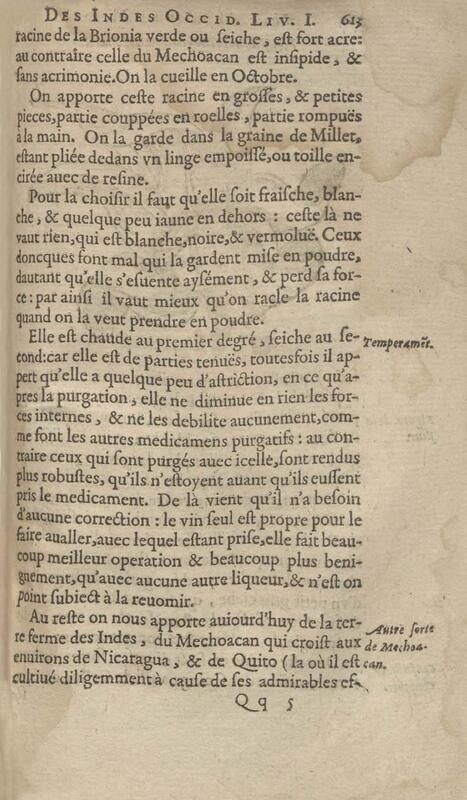 DES INDES OCCID. LIV. I. 613
racine de la Brionia verde ou ſeiche, eſt fort acre:
au contraire celle du Mechoacan eſt inſipide, &
ſans acrimonie. On la cueille en Octobre.
On apporte ceſte racine en groſſes, & petites
pieces, partie couppées en roelles, partie rompuës
à la main. On la garde dans la graine de Millet,
eſtant pliée dedans vn linge empoiſſé, ou toille en-
cirée auec de reſine.
Pour la choiſir il faut qu'elle ſoit fraiſche, blan-
che, & quelque peu iaune en dehors : ceſte là ne
vaut rien, qui eſt blanche, noire, & vermoluë. Ceux
doncques font mal qui la gardent miſe en poudre,
dautant qu'elle s'eſuente ayſément, & perd ſa for-
ce : par ainſi il vaut mieux qu'on racle la racine
quand on la veut prendre en poudre.
Elle eſt chaude au premier degré, ſeiche au ſe-
cond: car elle eſt de parties tenuës, toutesfois il ap-
pert qu'elle a quelque peu d'aſtriction, en ce qu'a-
pres la purgation, elle ne diminue en rien les for-
ces internes, & ne les debilite aucunement, com-
me font les autres medicamens purgatifs : au con-
traire ceux qui ſont purgés auec icelle, ſont rendus
plus robuſtes, qu'ils n'eſtoyent auant qu'ils euſſent
pris le medicament. De là vient qu'il n'a beſoin
d'aucune correction : le vin ſeul eſt propre pour le
faire aualler, auec lequel eſtant priſe, elle fait beau-
coup meilleur operation & beaucoup plus beni-
gnement, qu'auec aucune autre liqueur, & n'eſt on
point ſubiect à la reuomir.
Au reſte on nous apporte auiourd'huy de la ter-
re ferme des Indes, du Mechoacan qui croiſt aux
enuirons de Nicaragua, & de Quito (la où il eſt
cultiué diligemment à cauſe de ſes admirables ef-
Qq 5
Temperamẽt.
Autre ſorte
de Mechoa-
can.